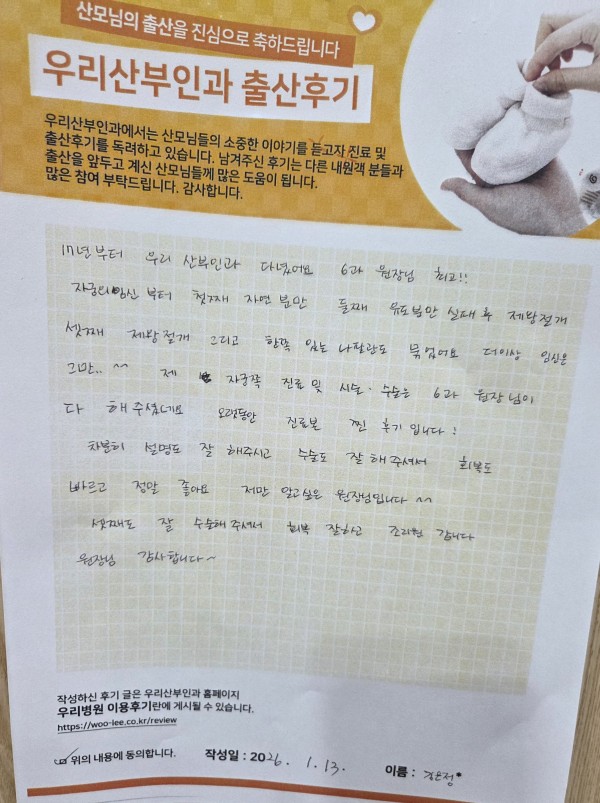 산모님의 출산을 진심으로 축하드립니다
우리산부인과 출산후기
우리산부인과에서는 산모님들의 소중한 이야기를 듣고자 진료 및
출산후기를 독려하고 있습니다. 남겨주신 후기는 다른 내원객 분들과
출산을 앞두고 계신 산모님들께 많은 도움이 됩니다.
많은 참여 부탁드립니다. 감사합니다.
17년부터 우리 산부인과 다녔어요 6과 원장님 최고!!
자궁외임신 부터 첫째 자연분만 둘째 유도분만 실패 후 제왕절개
셋째 제왕절개 그리고 한쪽 있는 나팔관도 묶었어요 더이상 임신은
그만.. ^^ 제 자궁쪽 진료 및 시술·수술은 6과 원장님이
다 해주셨네요 오랫동안 진료본 찐 후기입니다!
차분히 설명도 잘 해주시고 수술도 잘 해주셔서 회복도
빠르고 정말 좋아요 저만 알고싶은 원장님입니다 ^^
셋째도 잘 수술해주셔서 회복 잘하고 조리원 갑니다
원장님 감사합니다~
작성하신 후기 글은 우리산부인과 홈페이지
우리병원 이용후기란에 게시될 수 있습니다.
https://woo-lee.co.kr/review
위의 내용에 동의합니다. 작성일 : 2026. 1. 13. 이름 :